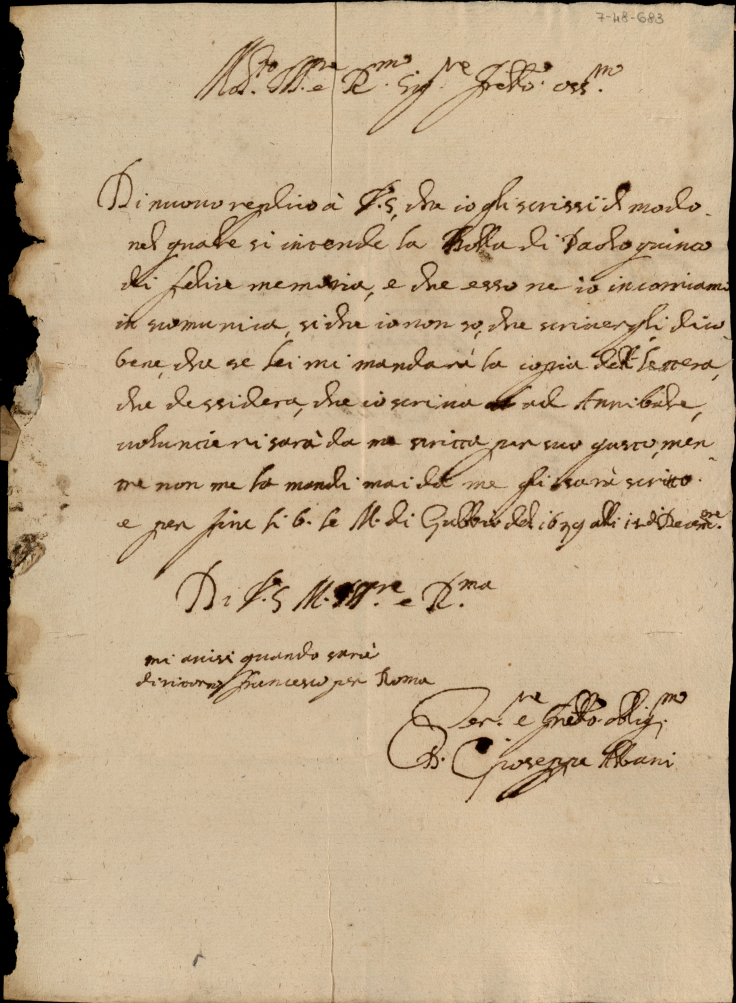 7-48-683
Mol.to Ill.re e R.mo Sig.re fr[at]ello oss.mo
Di nuovo replico à V.S, che io gli scrissi il modo
nel quale si intende la Bolla di Paolo quinto
di felice memoria, e che esso ne io incorriamo
in scomunica, si che io non so, che scrivergli dico
bene, che se lei mi mandarà la copia dell lettera,
che dessidera, che io scriva ad Annibale,
voluntieri sarà da me scritta per suo gusto, men
tre non me la mandi mai da me gli sarà scritto.
e per fine li b. le M. di Gubbio del 1639 alli 12 di Decem.re
Di V.S M. Ill.re e R.ma
mi avisi quando sarà
di ritorno francesco per Roma
Ser.re e fr[at]ello oblig.mo
D. Gioseppe Albani